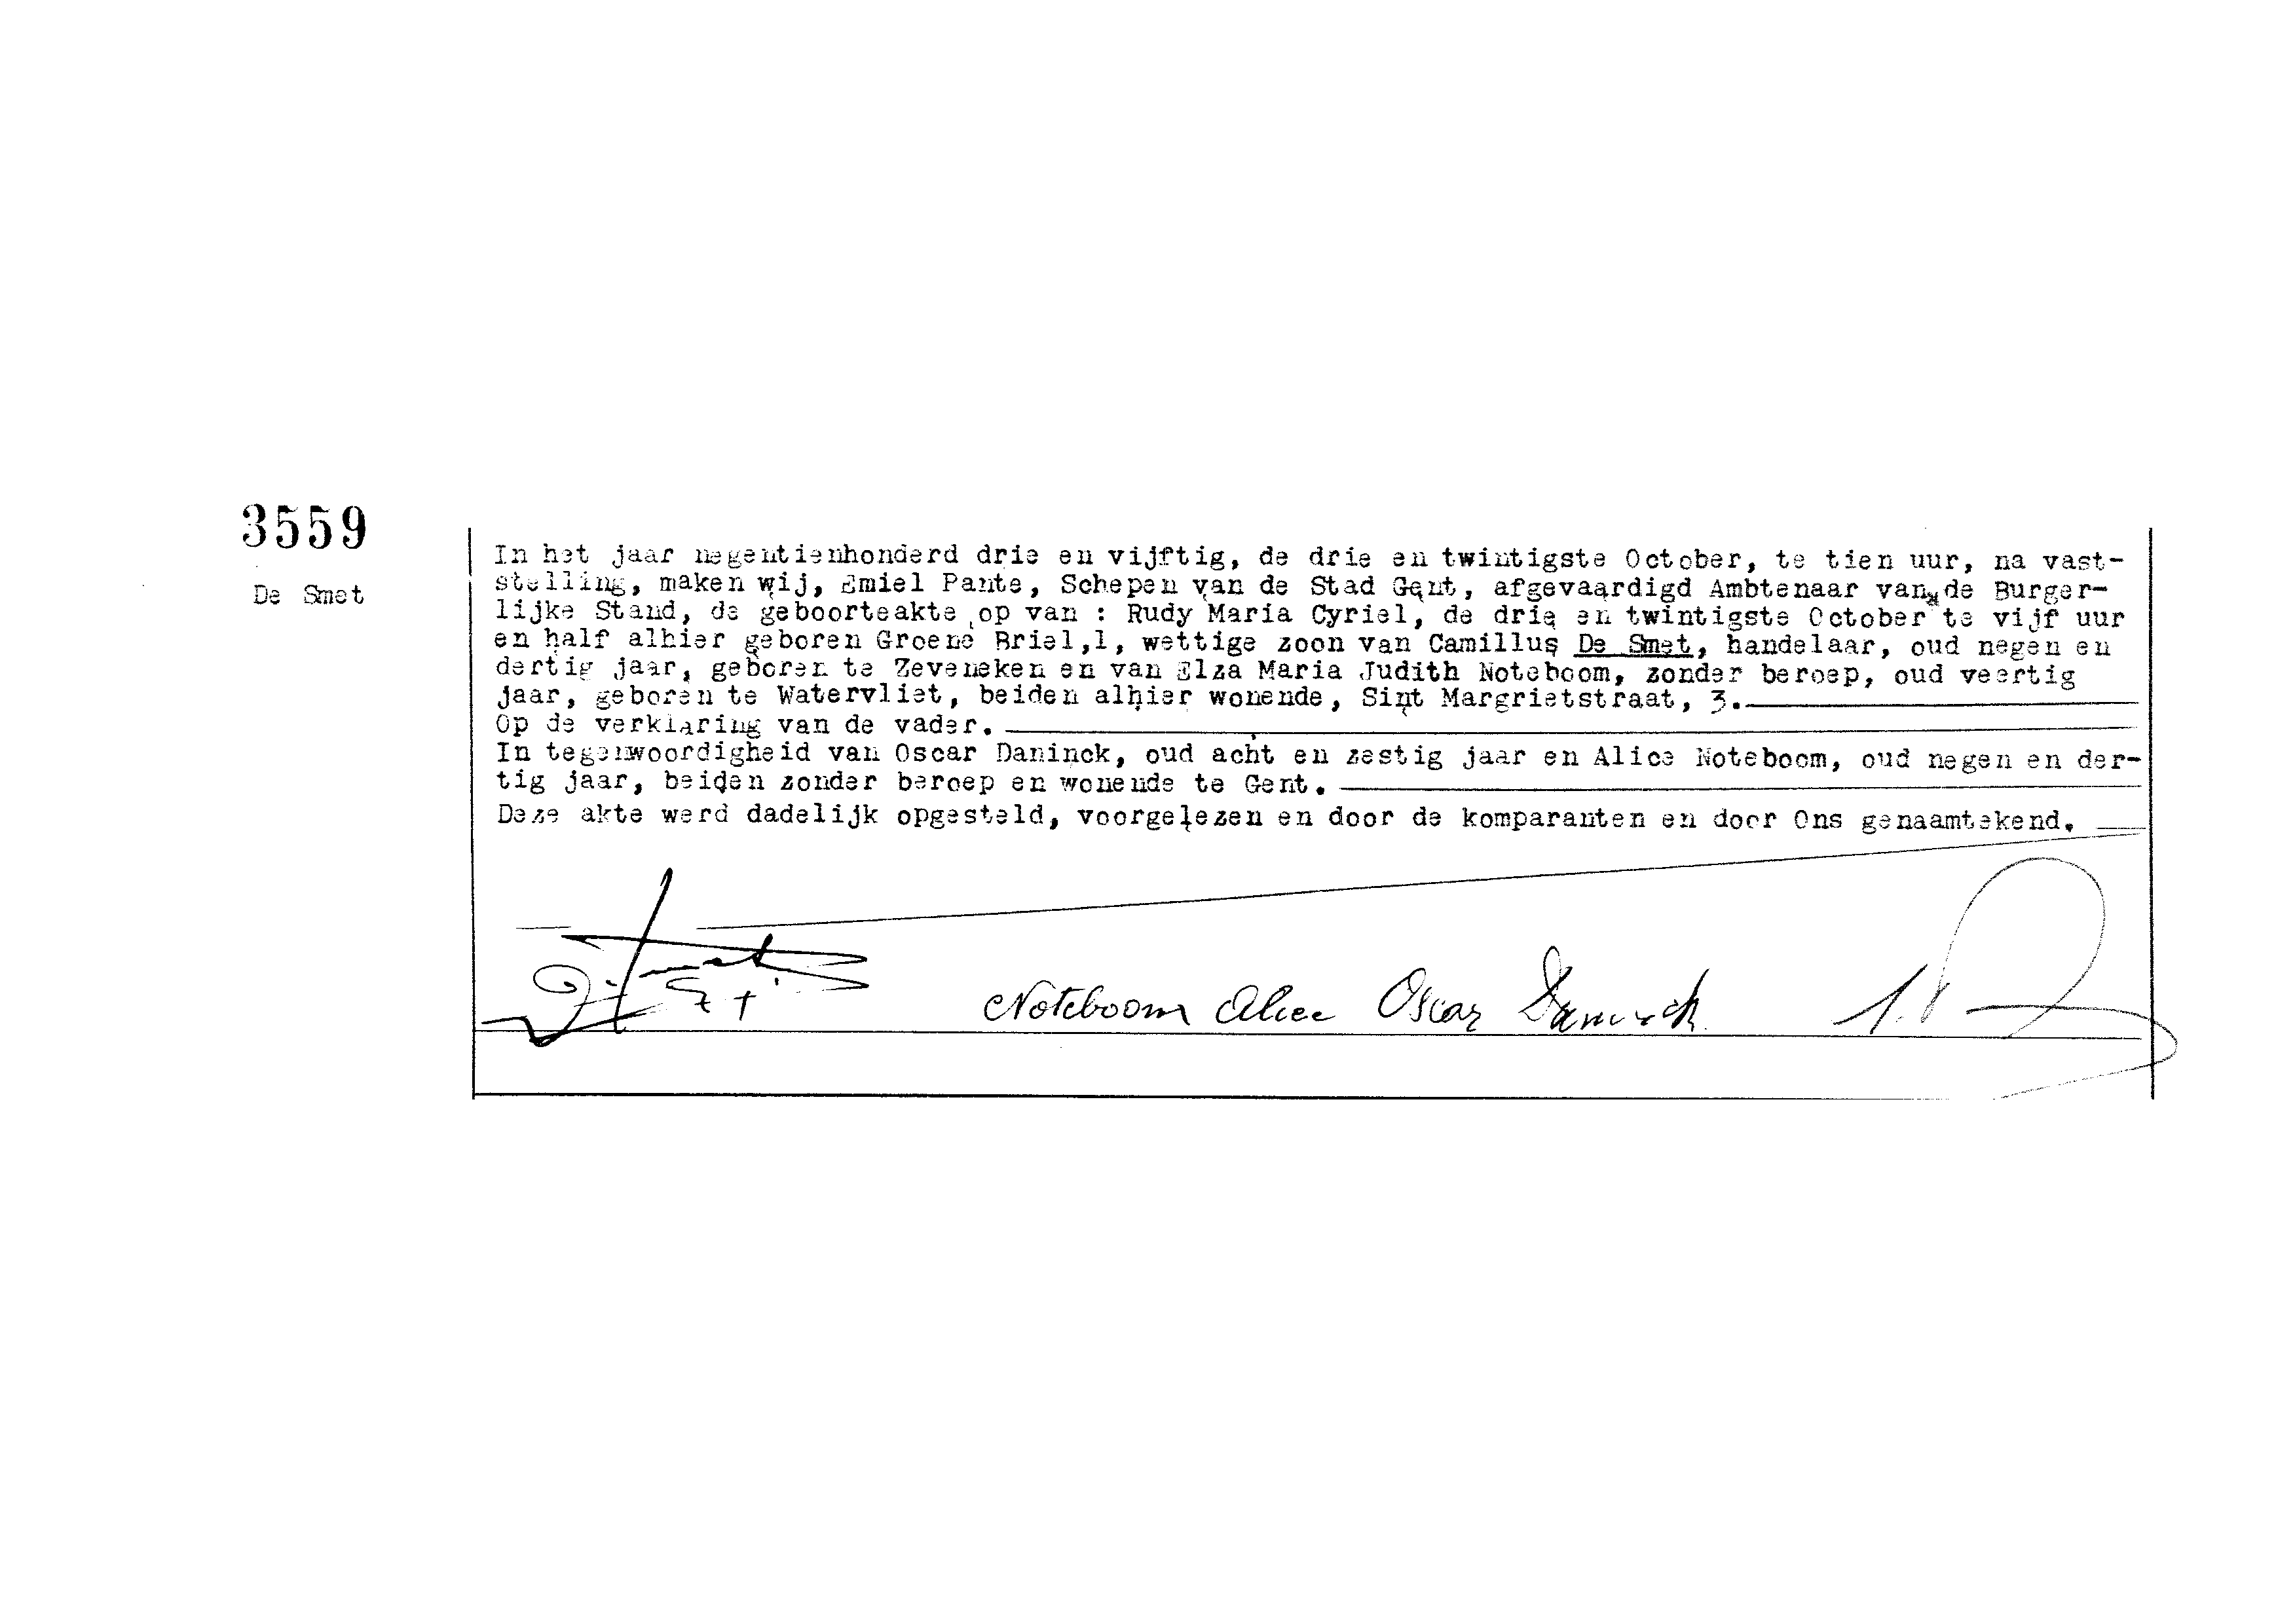 3559
De Smet
In het jaar negentienhonderd drie en vijftig, de drie en twintigste October, te tien uur, na vast-
stelling, maken wij, Emiel Pante, Schepen van de Stad Gent, afgevaardigd Ambtenaar van de Burger-
lijke Stand, de geboorteakte op van : Rudy Maria Cyriel, de drie en twintigste October te vijf uur
en half alhier geboren Groene Briel,1, wettige zoon van Camillus De Smet, handelaar, oud negen en
dertig jaar, geboren te Zeveneken en van Elza Maria Judith Noteboom, zonder beroep, oud veertig
jaar, geboren te Watervliet, beiden alhier wonende, Sint Margrietstraat, 3.
Op de verklaring van de vader.
In tegenwoordigheid van Oscar Daninck, oud acht en zestig jaar en Alice Noteboom, oud negen en der-
tig jaar, beiden zonder beroep en wonende te Gent.
Deze akte werd dadelijk opgesteld, voorgelezen en door de komparanten en door Ons genaamtekend.
Noteboom Alice Oscar Daninck